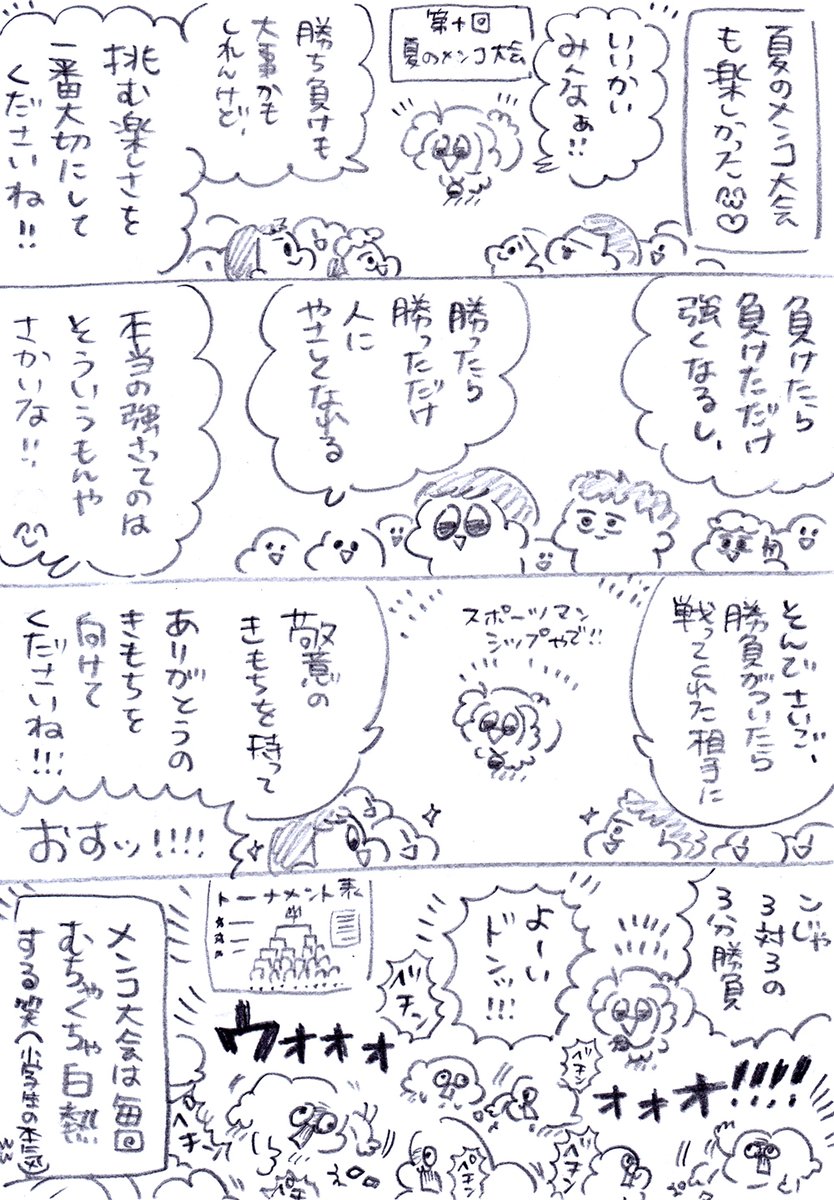 夏のメンコ大会
も楽しかった
いいかい
みんなぁ!!
第十回
夏のメンコ大会
勝ち負けも
大事かも
しれんけど、
挑む楽しさを
一番大切にして
くださいね!!
負けたら
負けただけ
強くなるし、
勝ったら
勝っただけ
人に
やさしくなれる
本当の強さってのは
そういうもんや
さかいな!!
そんでさいご、
勝負がついたら
戦ってくれた相手に
スポーツマン
シップやで!!
敬意の
きもちを持って
ありがとうの
きもちを
向けて
くださいね!!!
おすッ!!!!
こじゃ
3対3の
3分勝負
よーい
ドンッ!!!
トーナメント表
ベチン
ウオォォ
ォォォ!!!!
ベチン
ベチン
ベチン
ベチン
メンコ大会は毎回
むちゃくちゃ白熱
する笑(小学生の本気)